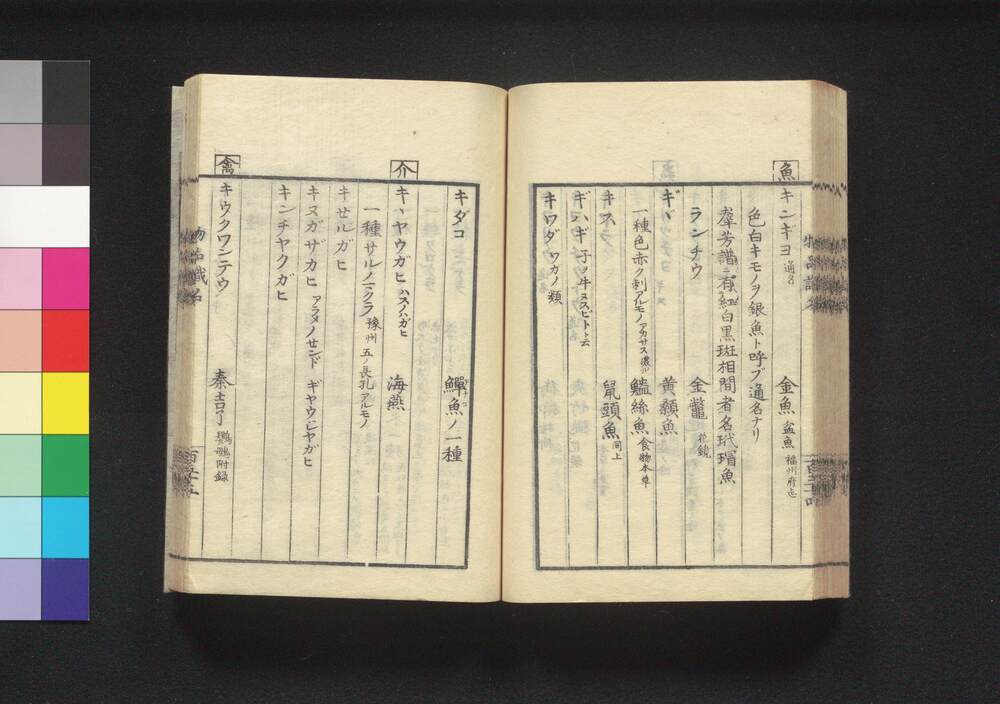 魚
キンギヨ 通名 金魚 盆魚 福州府志
色白キモノヲ銀魚ト呼ブ通名ナリ
羣芳譜ニ有紅白黒斑相間者名玳瑁魚
ランチウ 金鼈 花鏡
ギヾ 黄顙魚
一種色赤ク刺アルモノアカサス 魚 食物本草
キスゴ 鼠頭魚 同上
ギハギ
キワダ ワカノ類
キダコ 鱓魚ノ一種
介
キヽヤウガヒ ハスノハガヒ 海燕
一種サルノマクラ 豫州 五ノ長孔アルモノ
キセルガヒ
キヌガサガヒ ギヤウジヤガヒ
キンチヤクガヒ
禽
キウクワンテウ 秦吉了 附録
物品識名